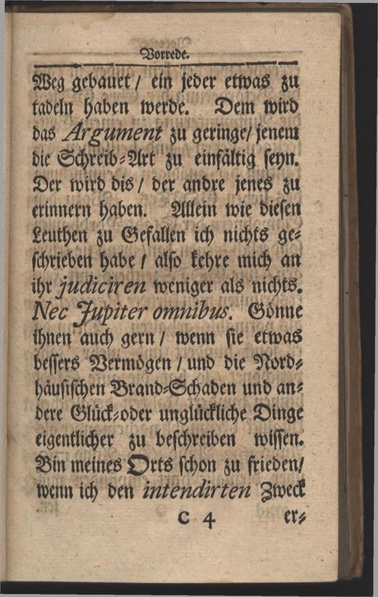 Vorrede.
Weg gebauet / ein jeder etwas zu
tadeln haben werde. Dem wird
das Argument zu geringe / jenem
die Schreib-Art zu einfältig seyn.
Der wird dis / der andre jenes zu
erinnern haben. Allein wie diesen
Leuthen zu Gefallen ich nichts ge-
schrieben habe / also kehre mich an
ihr judiciren weniger als nichts.
Nec Jupiter omnibus. Gönne
ihnen auch gern / wenn sie etwas
bessers Vermögen / und die Nord-
häusischen Brand-Schaden und an-
dere Glück-oder unglückliche Dinge
eigentlicher zu beschreiben wissen.
Bin meines Orts schon zu frieden /
wenn ich den intendirten Zweck
C 4 er-